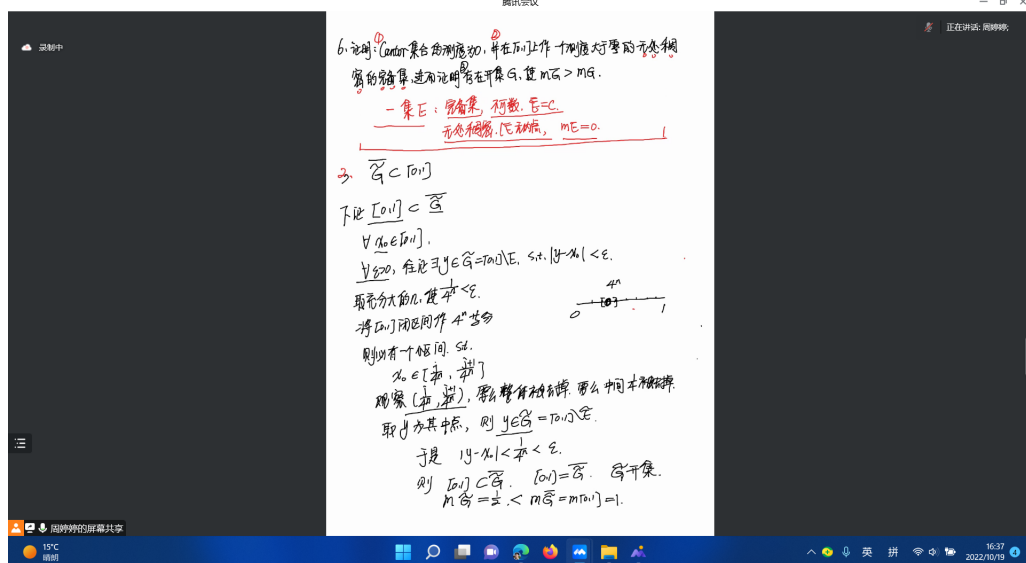 腾讯会议
录制中
正在讲话: 周婷婷;
① ②
6. 证明: Cantor集合的测度为0, 并在[0,1]上作一个测度大于零的无处稠
密的完备集, 进而证明存在开集G, 使 mG̅ > mG.
③
一集E: 完备集, 不可数. E̿=C.
无处稠密. 无内点, mE=0.
3. G̃̅ ⊂ [0,1]
下证 [0,1] ⊂ G̃̅
∀ x₀∈[0,1],
∀ε>0, 往证∃y∈G̃=[0,1]\E, s.t. |y-x₀|<ε.
取充分大的n, 使 1/4ⁿ <ε.
4ⁿ
将[0,1]闭区间作4ⁿ等分
0 1
则必有一个区间. s.t.
x₀∈[i/4ⁿ, i+1/4ⁿ]
观察(i/4ⁿ, i+1/4ⁿ), 要么整体被去掉. 要么中间
取y为其中点, 则 y∈G̃=[0,1]\E.
于是 |y-x₀|<1/4ⁿ<ε.
则 [0,1]⊂G̃̅. [0,1]=G̃̅. G̃开集.
mG̃=1/2.< mG̃̅=m[0,1]=1.
周婷婷的屏幕共享
15°C
晴朗
英 拼
16:37
2022/10/19
4